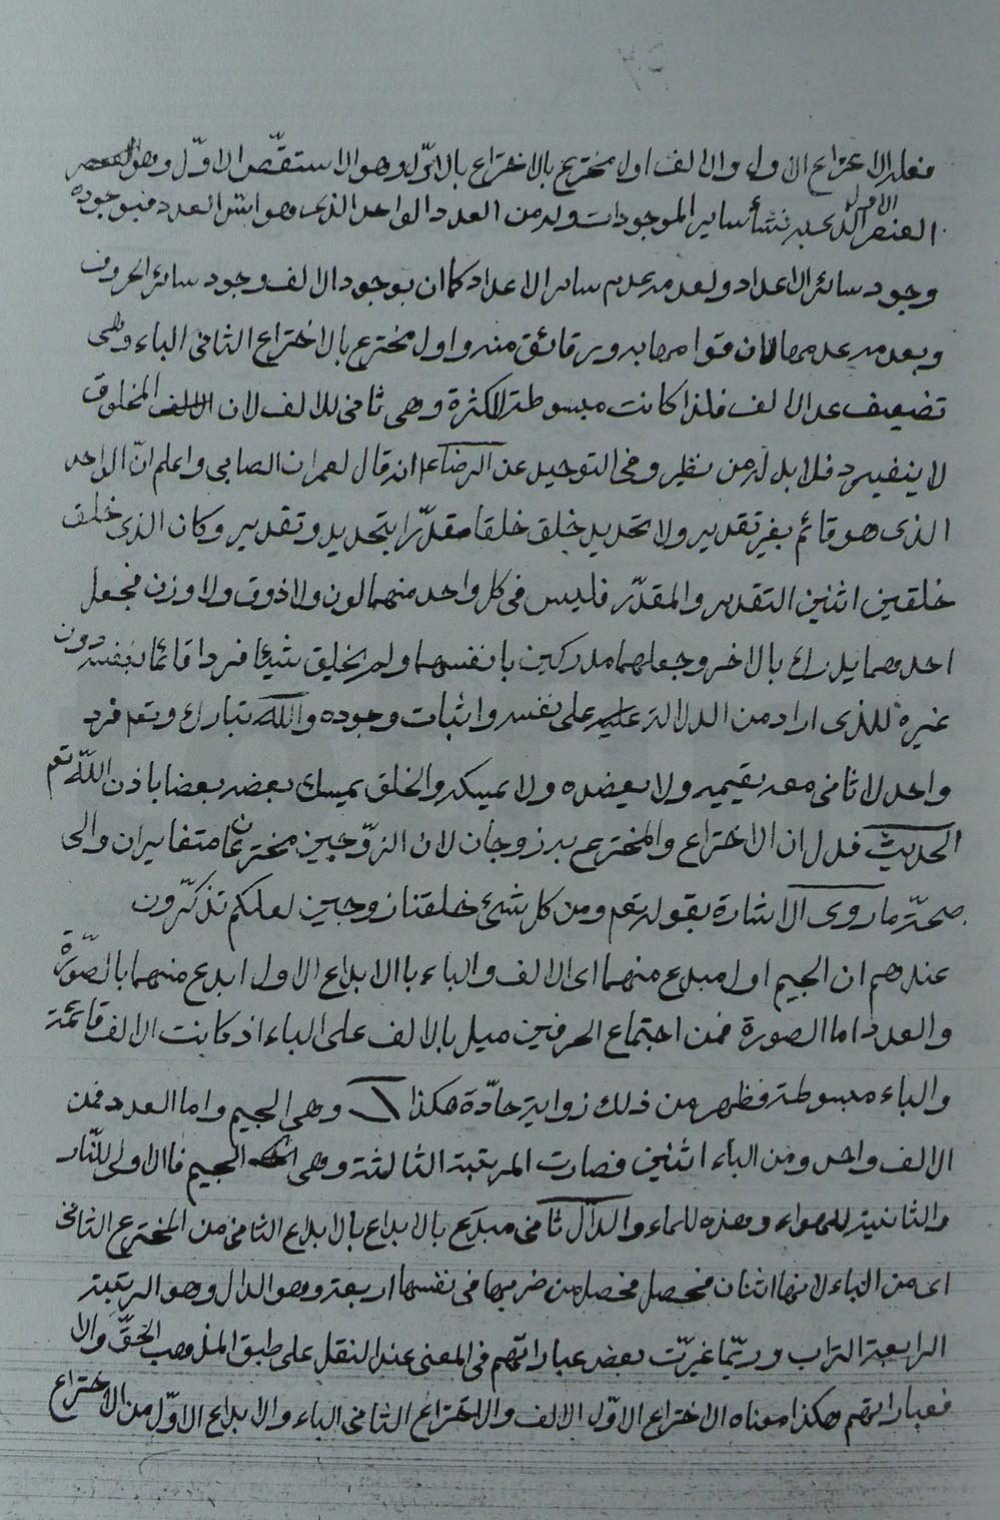 فعله الاختراع الاول والالف اول مخترع بالاختراع بالاول وهو الاستقص الاوّل وهو العنصر
الاول
العنصر الذى به نشأ ساير الموجودات وله من العدد الواحد الذى هو اسّ العدد فبوجوده
وجود سائر الاعداد وبعدمه عدم ساير الاعداد كما ان بوجود الالف وجود سائر الحروف
وبعدمه عدمها لان قوامها به وبرقائق منه واول مخترع بالاختراع الثانى الباء وهى
تضعيف عدد الالف فلذا كانت مبسوطة للكثرة وهى ثانى للالف لان الالف المخلوق
لا ينفرد فلا بد له من نظير وفى التوحيد عن الرضا ع انه قال لعمران الصابى واعلم انّ الواحد
الذى هو قائم بغير تقدير ولا تحديد خلق خلقا مقدّرا بتحديد وتقدير وكان الذى خلق
خلقين اثنين التقدير والمقدّر فليس فى كل واحد منهما لون ولا ذوق ولا وزن فجعل
احدهما يدرك بالاخر وجعلهما مدركين بانفسهما ولم يخلق شيئا فردا قائما بنفسه دون
غيره للذى اراد من الدلالة على نفسه واثبات وجوده والله تبارك وتعم فرد
واحد لا ثانى معه يقيمه ولا يعضده ولا يمسكه والخلق يمسك بعضه بعضا باذن اللّه تعم
الحديث فدل ان الاختراع والمخترع به زوجان لان الزّوجين مخترعان متغايران والى
صحّة ما روى الاشارة بقوله تعم ومن كل شئ خلقنا زوجين لعلكم تذكّرون
عندهم ان الجيم اول مبدع منهما اى الالف والباء بالابداع الاول ابدع منهما بالصّورة
والعدد اما الصورة فمن اجتماع الحرفين ميل بالالف على الباء اذ كانت الالف قائمة
والباء مبسوطة فظهر من ذلك زواية حادّة هكذا وهى الجيم واما العدد فمن
الالف واحد ومن الباء اثنين فصارت المرتبة الثالثة وهى الجيم فالاولى للنّار
والثانية للهواء وهذه للماء والدال ثانى مبدَع بالابداع بالابداع الثانى من المخترع الثانى
اى من الباء لانها اثنان فحصل فحصل من ضربها فى نفسها اربعة وهو الدال وهو الرتبة
الرابعة التراب وربّما غيرّت بعض عباراتهم فى المعنى عند النقل على طبق المذهب الحقّ والا
فعباراتهم هكذا معناه الاختراع الاوّل الالف والاختراع الثانى الباء والابداع الاوّل من الاختراع